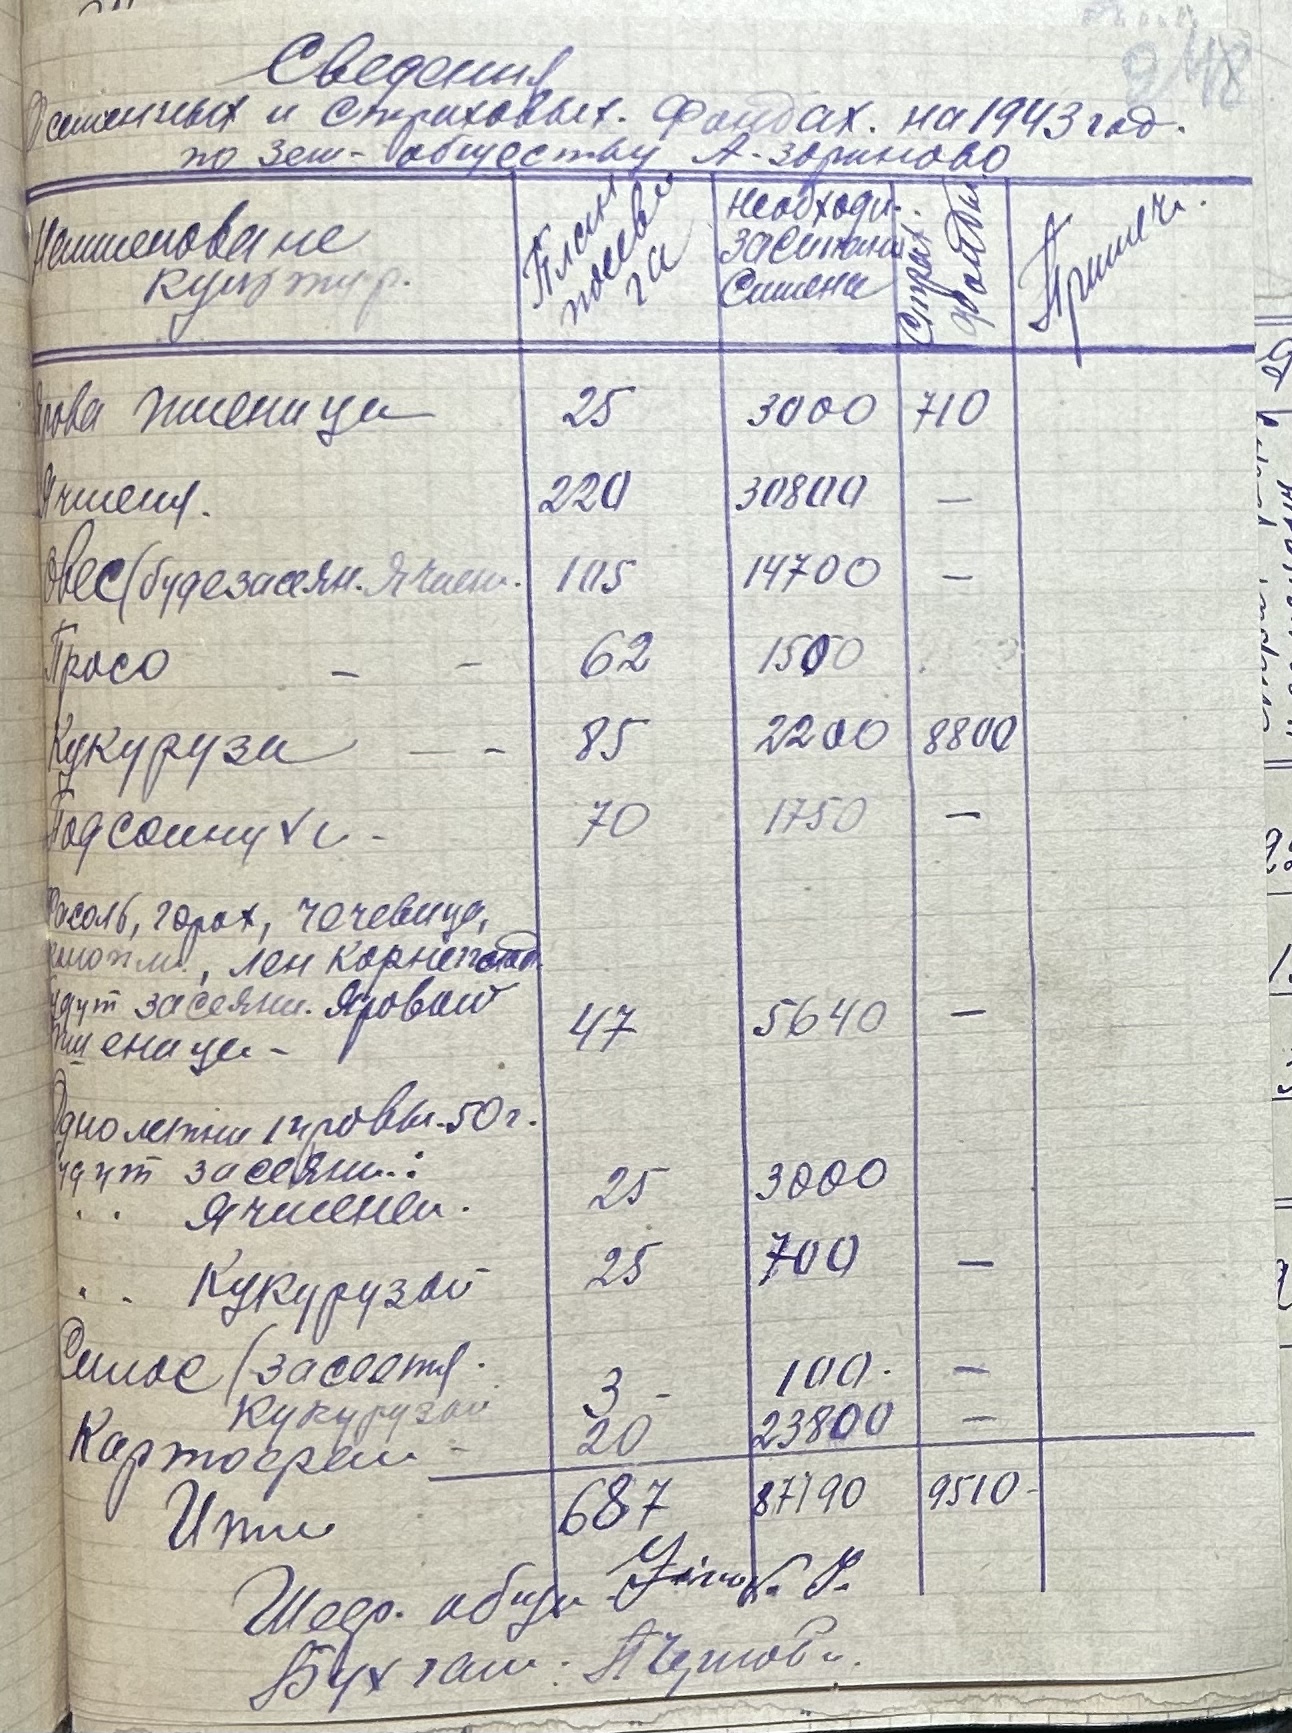 248
Сведения
О семенных и страховых. фондах. на 1943 год.
по Зем- обществу А-Зориново
Наименование культур.
План посева га
Необходи. засипани симена
Страх. фонды
Примеч.
Ярова пшеница 25 3000 710
Ячмень. 220 30800 —
Овес (буде засеян. Ячмен. 105 14700 —
Просо – – 62 1500
Кукуруза – – 85 2200 8800
Подсолнухи - 70 1750 —
Фасоль, горох, чечевица,
лен корнеплод
будут засеяны. Яровой 47 5640 —
пшеница -
Однолетни травы. 50 г.
будут засеяны: 25 3000
.. Ячменем.
.. Кукурузой 25 700 —
Силос (засеется. 3 - 100. —
Кукурузой
Картофель - 20 23800 —
Итог 687 87190 9510-
Шедр. общи.
Бухгалт.